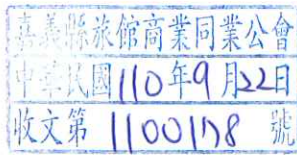 嘉義縣旅館商業同業公會
中華民國110年9月22日
收文第1100178號